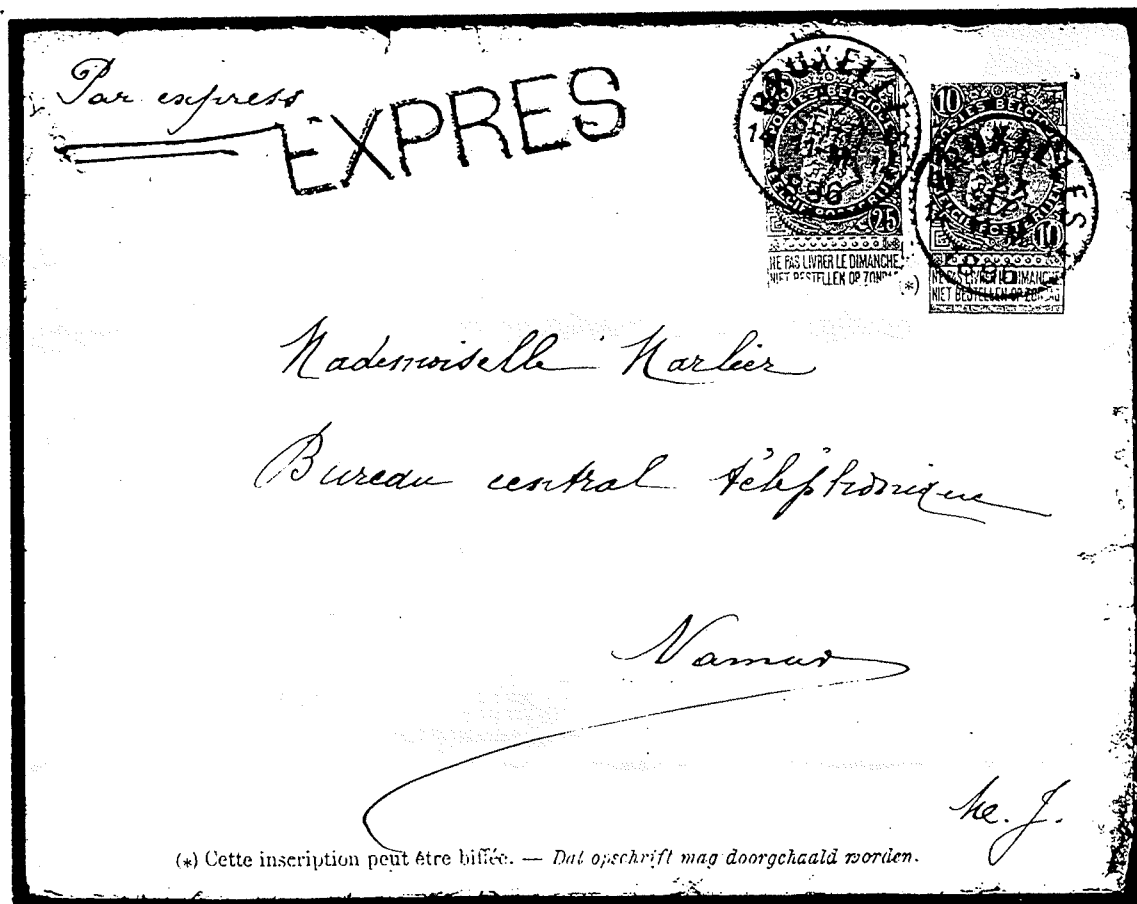 Par express
EXPRES
25
BRUXELLES
POSTES BELGIQUE
1896
BELGIE POSTERIJEN
25
NE PAS LIVRER LE DIMANCHE
NIET BESTELLEN OP ZONDAG
(*)
10
BRUXELLES
POSTES BELGIQUE
1896
BELGIE POSTERIJEN
10
NE PAS LIVRER LE DIMANCHE
NIET BESTELLEN OP ZONDAG
Mademoiselle Marlier
Bureau central téléphonique
Namur
(*) Cette inscription peut être biffée. — Dat opschrift mag doorgehaald worden.